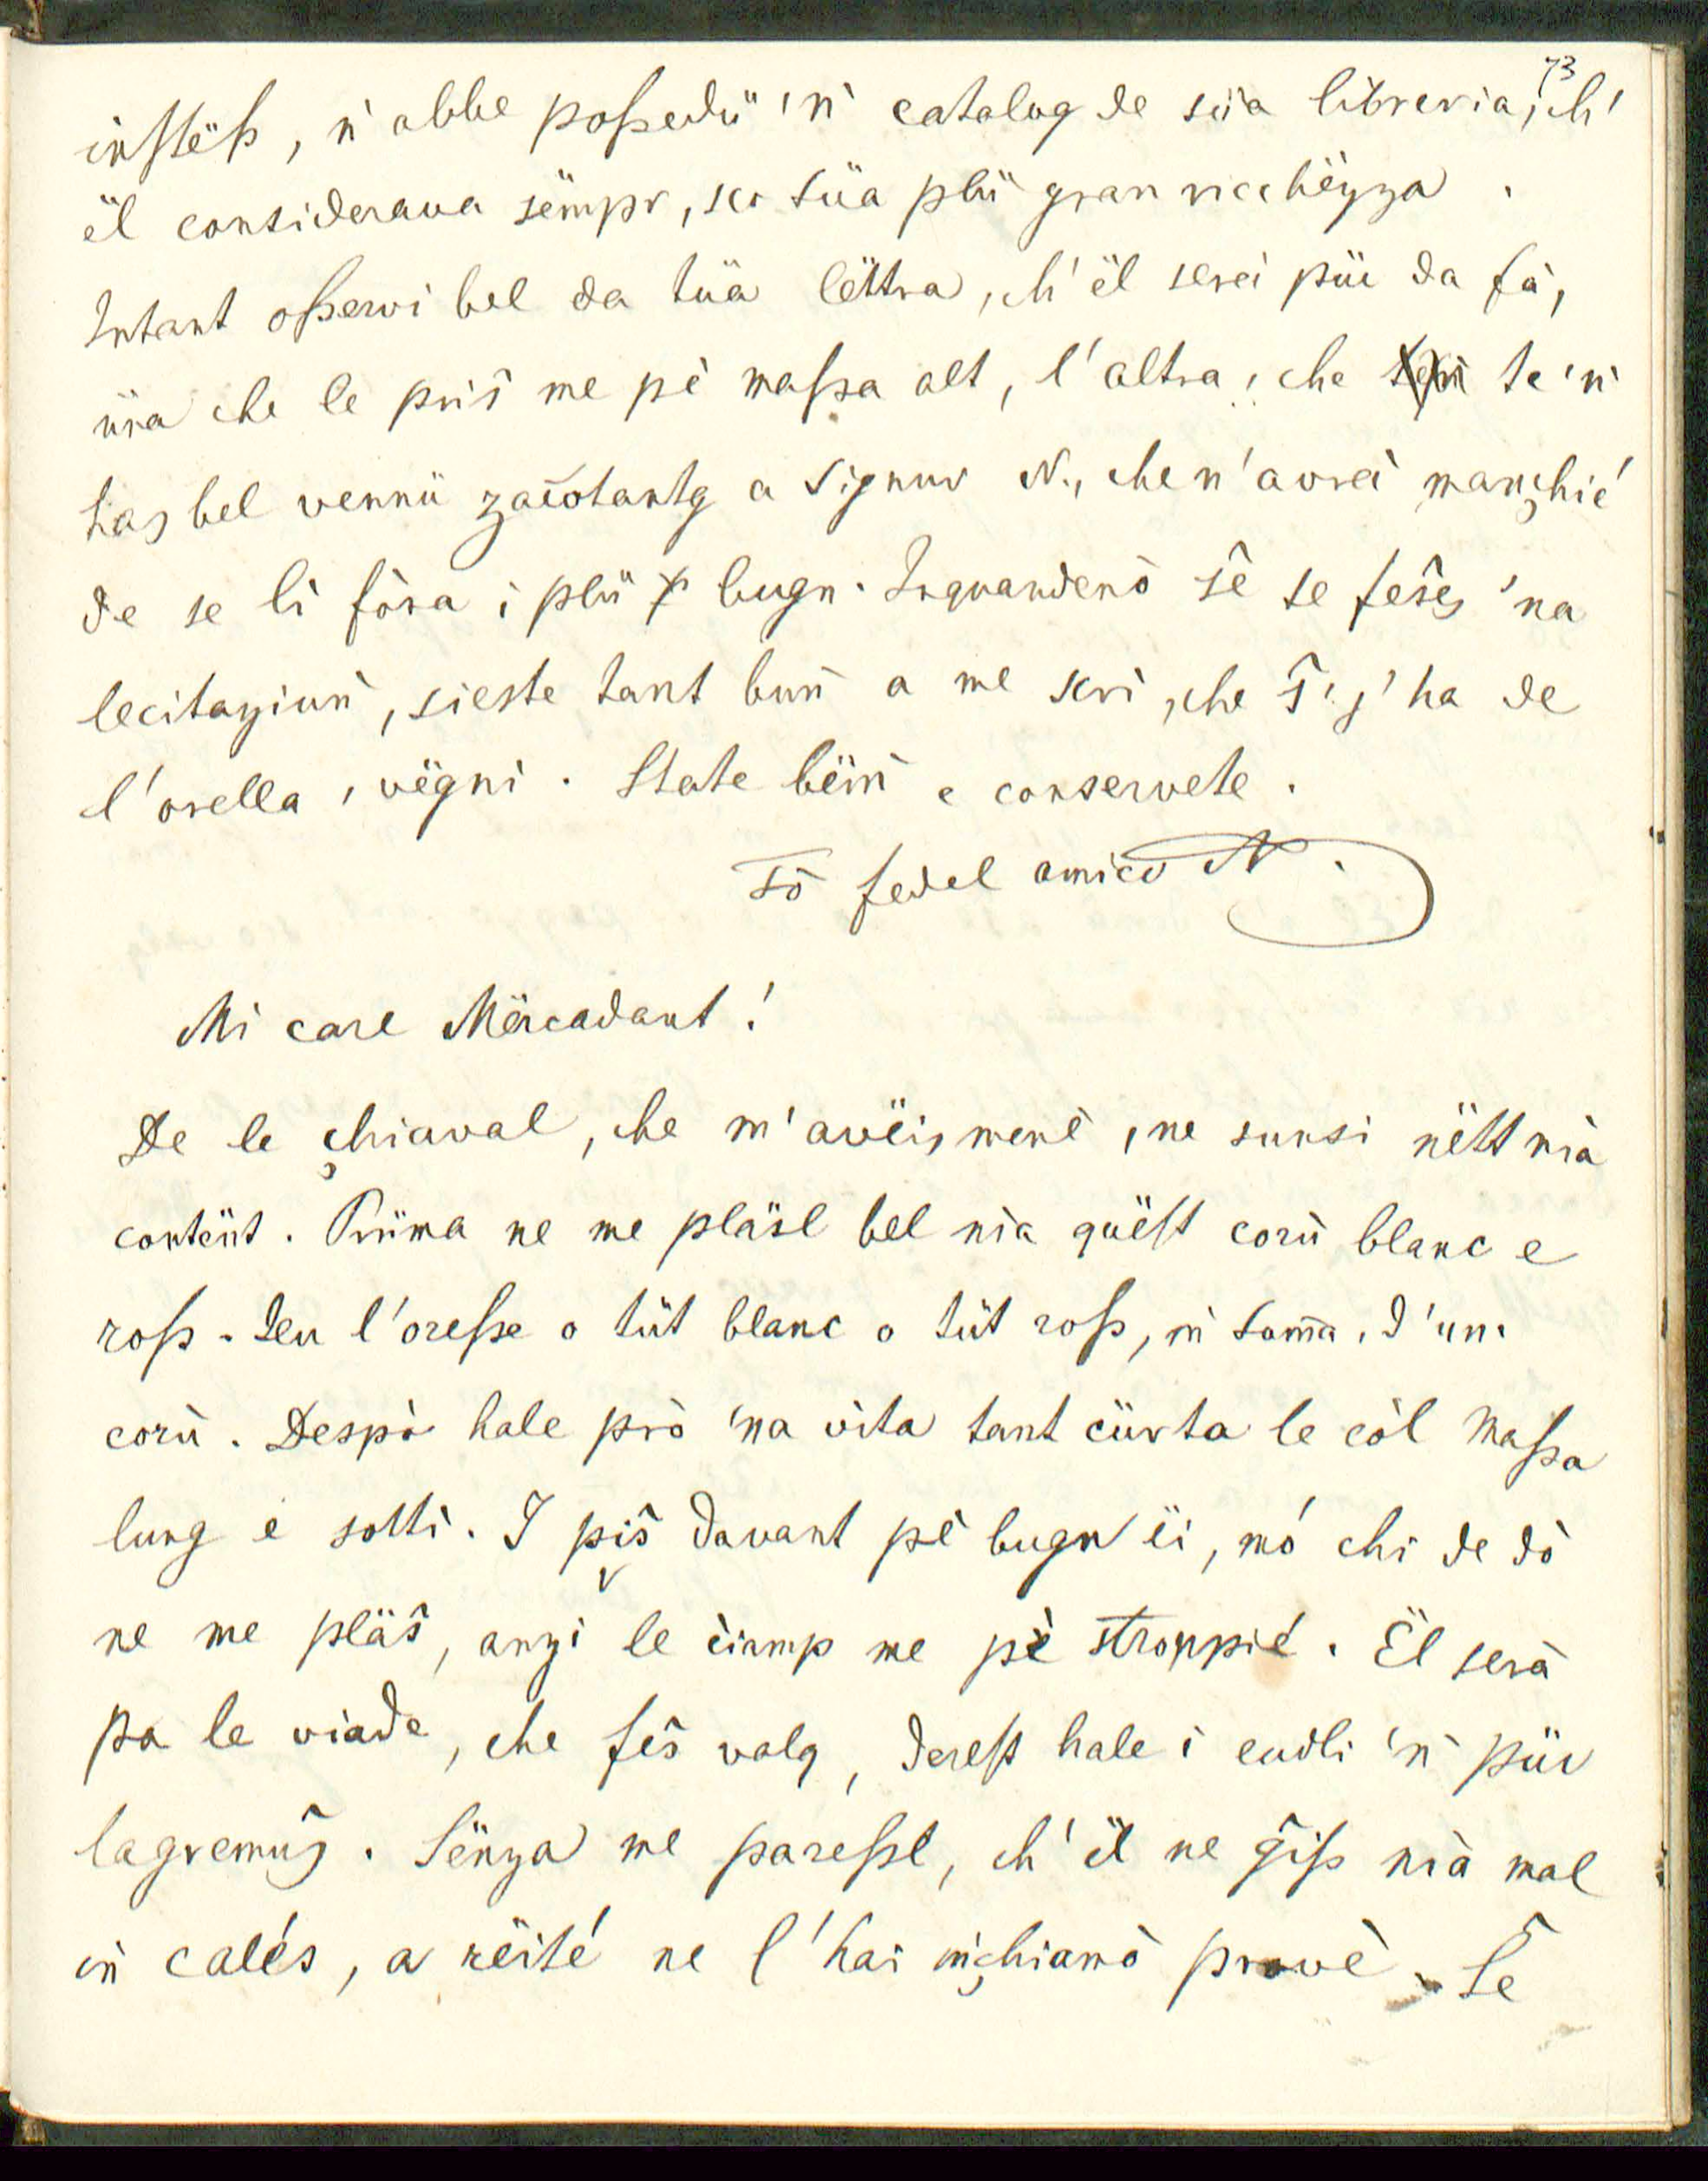 73
instëß, n' abbe poßedü 'ǹ catalog de süa libreria, ch'
ël considerava sëmpr, sco süa plü gran ricchëzza.
Intant oßervi bel da tüa lëttra, ch' ël serei püc da fà,
üna che le priš me pè maßa alt, l'altra, che te 'ǹ
has bel vennü zacotantg a Signur N., che n' avrei mançhié
de se lì fòra i plü bugn. Inquandenò šë se fešes 'na
lecitaziuǹ, sieste tant buǹ a me scrì, che š' j' ha de
l'orella, vëgni. State bëiǹ e conservete.
Tò fedel amico N.
Mi care Mërcadant!
De le çhiaval, che m' avëis menè, ne sunsi nëtt nià
contënt. Prüma ne me pläšl bel nia quëst corù blanc e
roß. Ieu l'oreße o tüt blanc o tüt roß, iǹ soma, d'un
corù. Despò hale prò 'na vita tant cürta le còl maßa
lung e sottì. I piš davant pè bugn ëi, mó chi de dò
ne me pläš, anzi le ćiamp me pè stroppié. Ël serà
pa le viade, che feš valg, dereß hale i eudli 'ǹ püc
lagremuš. Sënza me pareßel, ch' ël ne ğiß nià mal
iǹ calés, a rëité ne l' hai inçhiamò provè. Šë